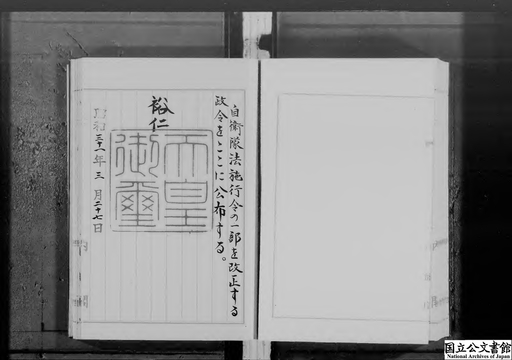 自衛隊法施行令の一部を改正する
政令をここに公布する。
裕仁
天皇
御璽
昭和三十一年三月二十七日
国立公文書館
National Archives of Japan